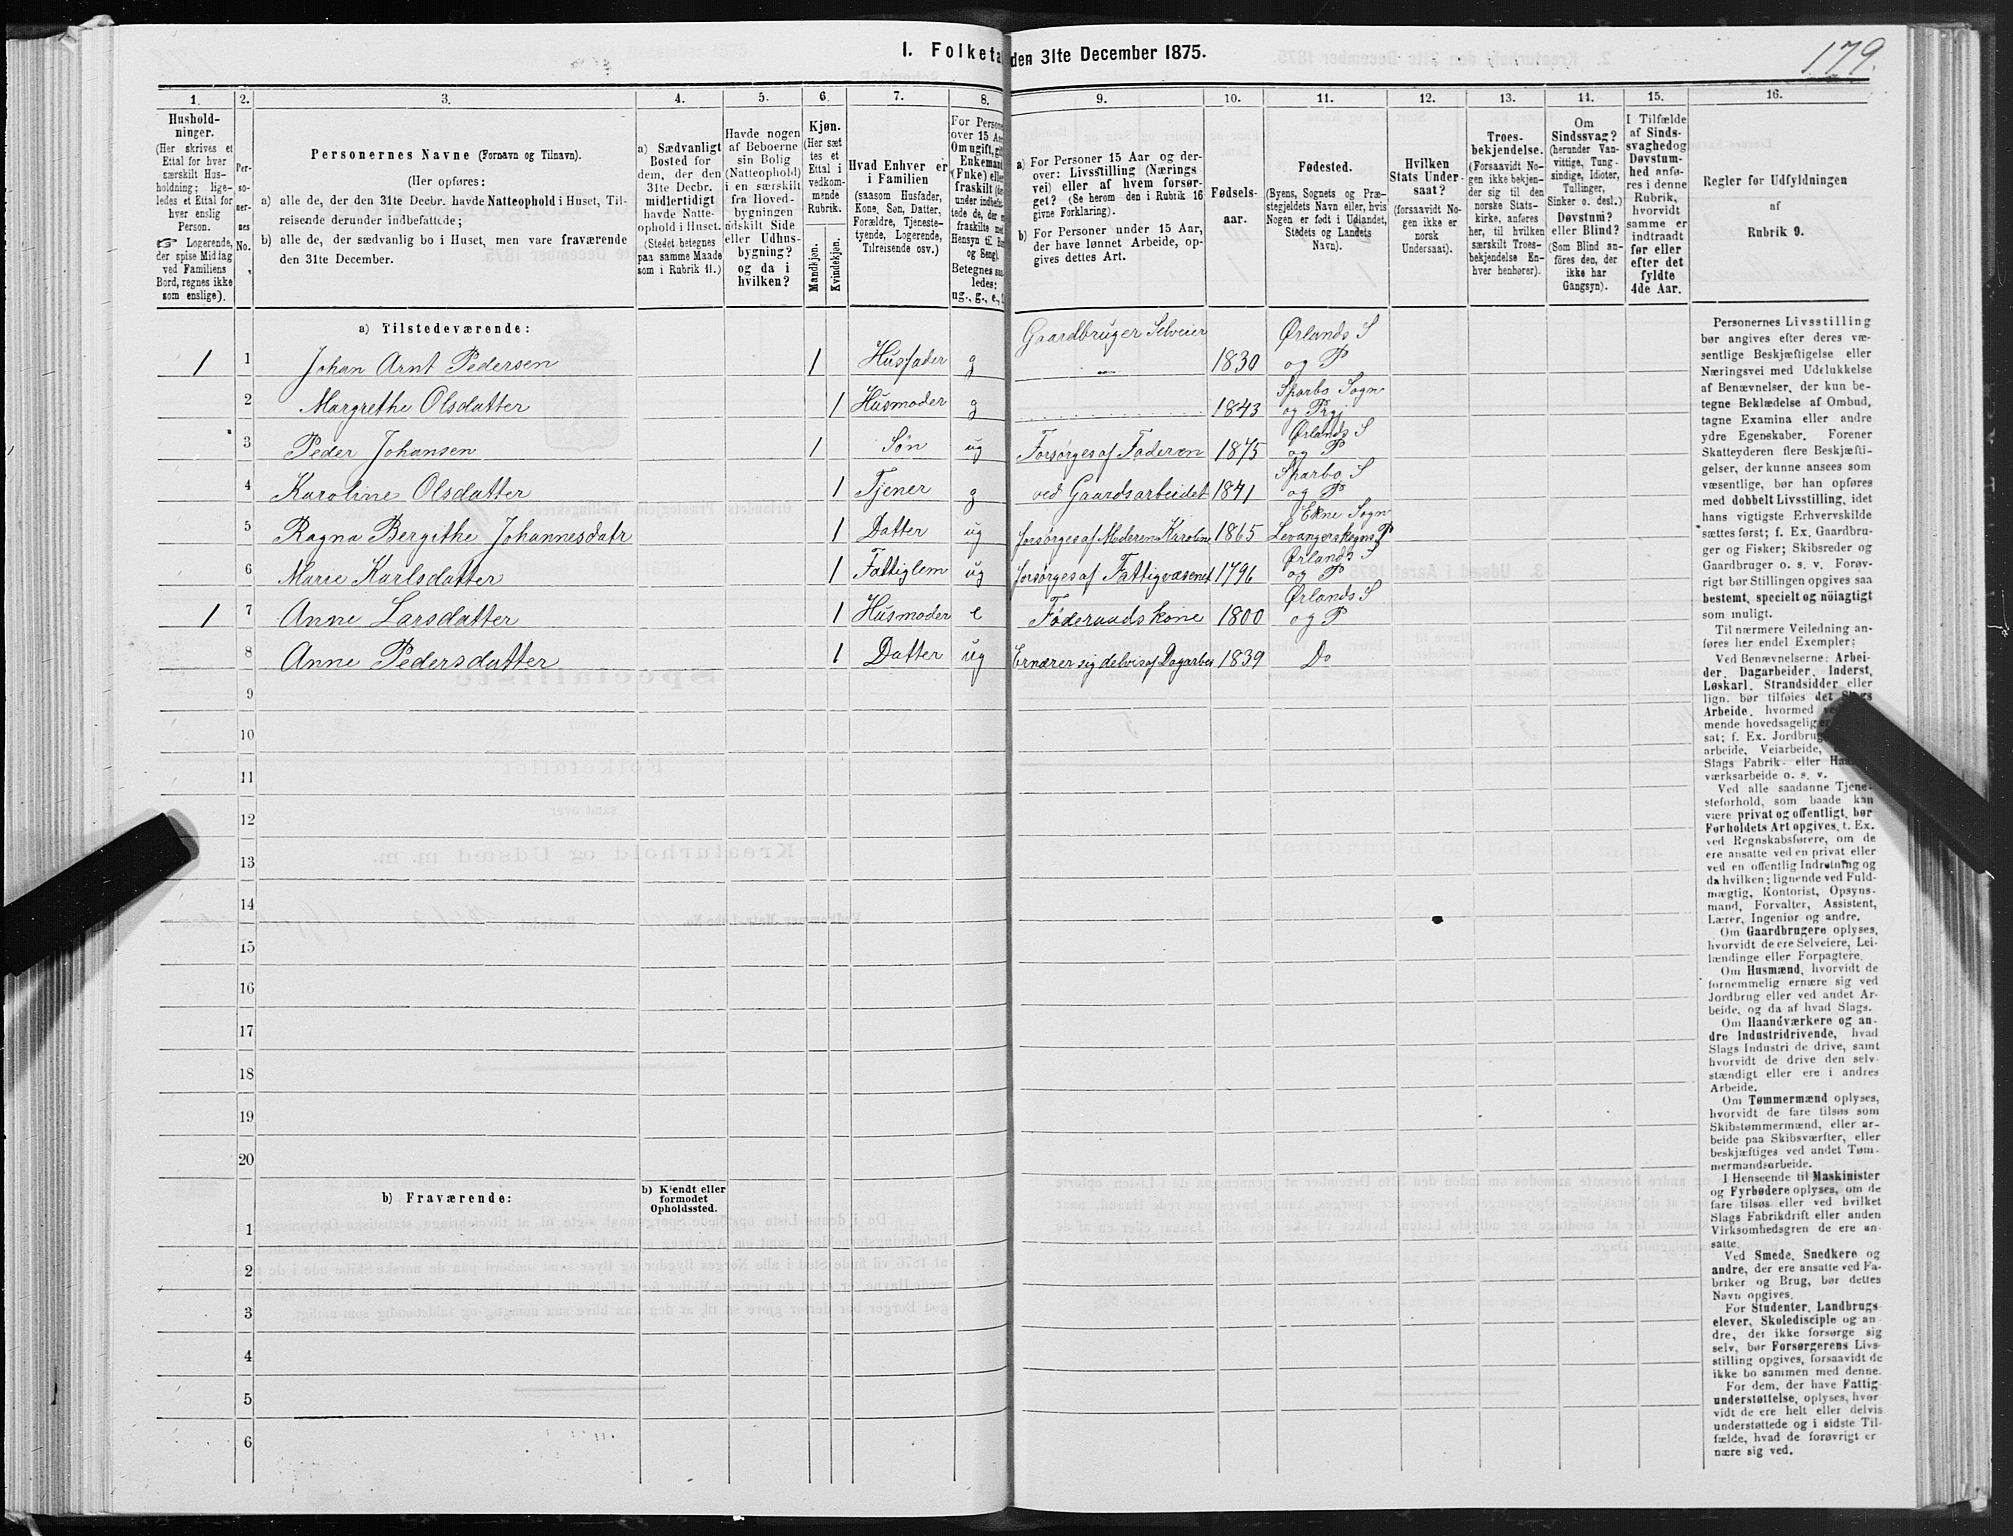 I. Folketa den 31te December 1875.
179.
1. 2. 3. 4. 5. 6. 7. 8. 9. 10. 11. 12. 13. 14. 15. 16.
Hushold-
ninger.
(Her skrives et
Ettal for hver
særskilt Hus-
holdning; lige-
ledes et Ettal for
hver enslig
Person.
☞ Logerende,
der spise Middag
ved Familiens
Bord, regnes ikke
som enslige).
Per-
so-
ner-
nes
No.
Personernes Navne (Fornavn og Tilnavn).
(Her opføres:
a) alle de, der den 31te Decbr. havde Natteophold i Huset, Til-
reisende derunder indbefattede;
b) alle de, der sædvanlig bo i Huset, men vare fraværende
den 31te December.
a) Sædvanligt
Bosted for
dem, der den
31te Decbr.
midlertidigt
havde Natte-
ophold i Huset.
(Stedet betegnes
paa samme Maade
som i Rubrik 11.)
Havde nogen
af Beboerne
sin Bolig
(Natteophold)
i en særskilt
fra Hoved-
bygningen
adskilt Side
eller Udhus-
bygning?
og da i
hvilken?
Kjøn.
(Her sæt
tes et
Ettal i
vedkom-
mende
Rubrik.
Mandkjøn.
Kvindekjøn.
Hvad Enhver er
i Familien
(saasom Husfader,
Kone, Søn, Datter,
Forældre, Tjeneste-
tyende, Logerende,
Tilreisende osv.)
For Persone
over 15 Aa
Om ugift, gif
Enkemand
(Enke) elle
fraskilt
Betegnes saa
ledes:
ug., g., e.,
a) For Personer 15 Aar og der-
over: Livsstilling (Nærings
vei) eller af hvem forsør-
get? (Se herom den i Rubrik 16
givne Forklaring).
b) For Personer under 15 Aar,
der have lønnet Arbeide, op-
gives dettes Art.
Fødsels-
aar.
Fødested.
(Byens, Sognets og Præ-
stegjeldets Navn eller, hvis
Nogen er født i Udlandet,
Stedets og Landets
Navn).
Hvilken
Stats Under-
saat?
(forsaavidt No-
gen ikke er
norsk
Undersaat).
Troes-
bekjendelse.
(Forsaavidt No-
gen ikke bekjen-
der sig til den
norske Stats-
kirke, anføres
her, til hvilken
særskilt Troes-
bekjendelse En-
hver henhører).
Om
Sindssvag?
(herunder Van-
vittige, Tung-
sindige, Idioter,
Tullinger,
Sinker o. desl.)
Døvstum?
eller Blind?
(Som Blind an-
føres den, der
ikke har
Gangsyn).
I Tilfælde
af Sinds-
svaghed og
Døvstum-
hed anfø-
res i denne
Rubrik,
hvorvidt
samme er
indtraadt
før eller
efter det
fyldte
4de Aar.
Regler for Udfyldningen
af
Rubrik 9.
a) Tilstedeværende:
1 1 Johan Arnt Pedersen 1 Husfader g Gaardbruger Selveier 1830 Ørlands S og P
2 Margrethe Olsdatter 1 Husmoder g 1843 Sparbo Sogn og Prgj
3 Peder Johansen 1 Søn ug Forsørges af Faderen 1875 Ørlands S og P
4 Karoline Olsdatter 1 Tjener g ved Gaardsarbeidet 1841 Sparbo S og P
5 Ragna Bergithe Johannesdatr 1 Datter ug forsørges af Moderen Karoline 1865 Ekne Sogn Levangerskogns P
6 Marie Karlsdatter 1 Fattiglem ug forsørges af Fattigvæsenet 1796 Ørlands S og P
1 7 Anne Larsdatter 1 Husmoder e Føderaadskone 1800 Ørlands S og P
8 Anne Pedersdatter 1 Datter ug Ernærer sig delvis af Dagarbei 1839 Do
9
10
11
12
13
14
15
16
17
18
19
20
b) Fraværende:
b) Kjendt eller
formodet
Opholdssted.
1
2
3
4
5
6
Personernes Livsstilling
bør angives efter deres væ-
sentlige Beskjæftigelse eller
Næringsvei med Udelukkelse
af Benævnelser, der kun be-
tegne Beklædelse af Ombud,
tagne Examina eller andre
ydre Egenskaber. Forener
Skatteyderen flere Beskjæfti-
gelser, der kunne ansees som
væsentlige, bør han opføres
med dobbelt Livsstilling, idet
hans vigtigste Erhvervskilde
sættes først; f. Ex. Gaardbru-
ger og Fisker; Skibsreder og
Gaardbruger o. s. v. Forøv-
rigt bør Stillingen opgives saa
bestemt, specielt og nöiagtigt
som muligt.
Til nærmere Veiledning an-
føres her endel Exempler:
Ved Benævnelserne: Arbei-
der, Dagarbeider, Inderst,
Løskarl, Strandsidder eller
lign. bør tilføies det Slags
Arbeide, hvormed
mende hovedsagelig
sat; f. Ex. Jordbrug
arbeide, Veiarbeide,
Slags Fabrik- eller Haa
værksarbeide o. s. v.
Ved alle saadanne Tjene-
steforhold, som baade kan
være privat og offentligt, bør
Forholdets Art opgives, t. Ex.
ved Regnskabsførere, om de
ere ansatte ved en privat eller
ved en offentlig Indretning og
da hvilken; lignende ved Fuld-
mægtig, Kontorist, Opsyns-
mand, Forvalter, Assistent,
Lærer, Ingeniør og andre.
Om Gaardbrugere oplyses,
hvorvidt de ere Selveiere, Lei-
lændinge eller Forpagtere.
Om Husmænd, hvorvidt de
fornemmelig ernære sig ved
Jordbrug eller ved andet Ar-
beide, og da af hvad Slags.
Om Haandværkere og an-
dre Industridrivende, hvad
Slags Industri de drive, samt
hvorvidt de drive den selv-
stændigt eller ere i andres
Arbeide.
Om Tømmermænd oplyses,
hvorvidt de fare tilsøs som
Skibstømmermænd, eller ar-
beide paa Skibsværfter, eller
beskjæftiges ved andet Tøm-
mermandsarbeide.
I Henseende til Maskinister
og Fyrbødere oplyses, om de
fare tilsøs eller ved hvilket
Slags Fabrikdrift eller anden
Virksomhedsgren de ere an-
satte.
Ved Smede, Snedkere og
andre, der ere ansatte ved Fa-
briker og Brug, bør dettes
Navn opgives.
For Studenter, Landbrugs
elever, Skoledisciple og an
dre, der ikke forsørge sig
selv, bør Forsørgerens Livs-
stilling opgives, forsaavidt de
ikke bo sammen med denne.
For dem, der have Fattig-
understøttelse, oplyses, hvor
vidt de ere helt eller delvis
understøttede og i sidste Til-
fælde, hvad de forøvrigt er
nære sig ved.